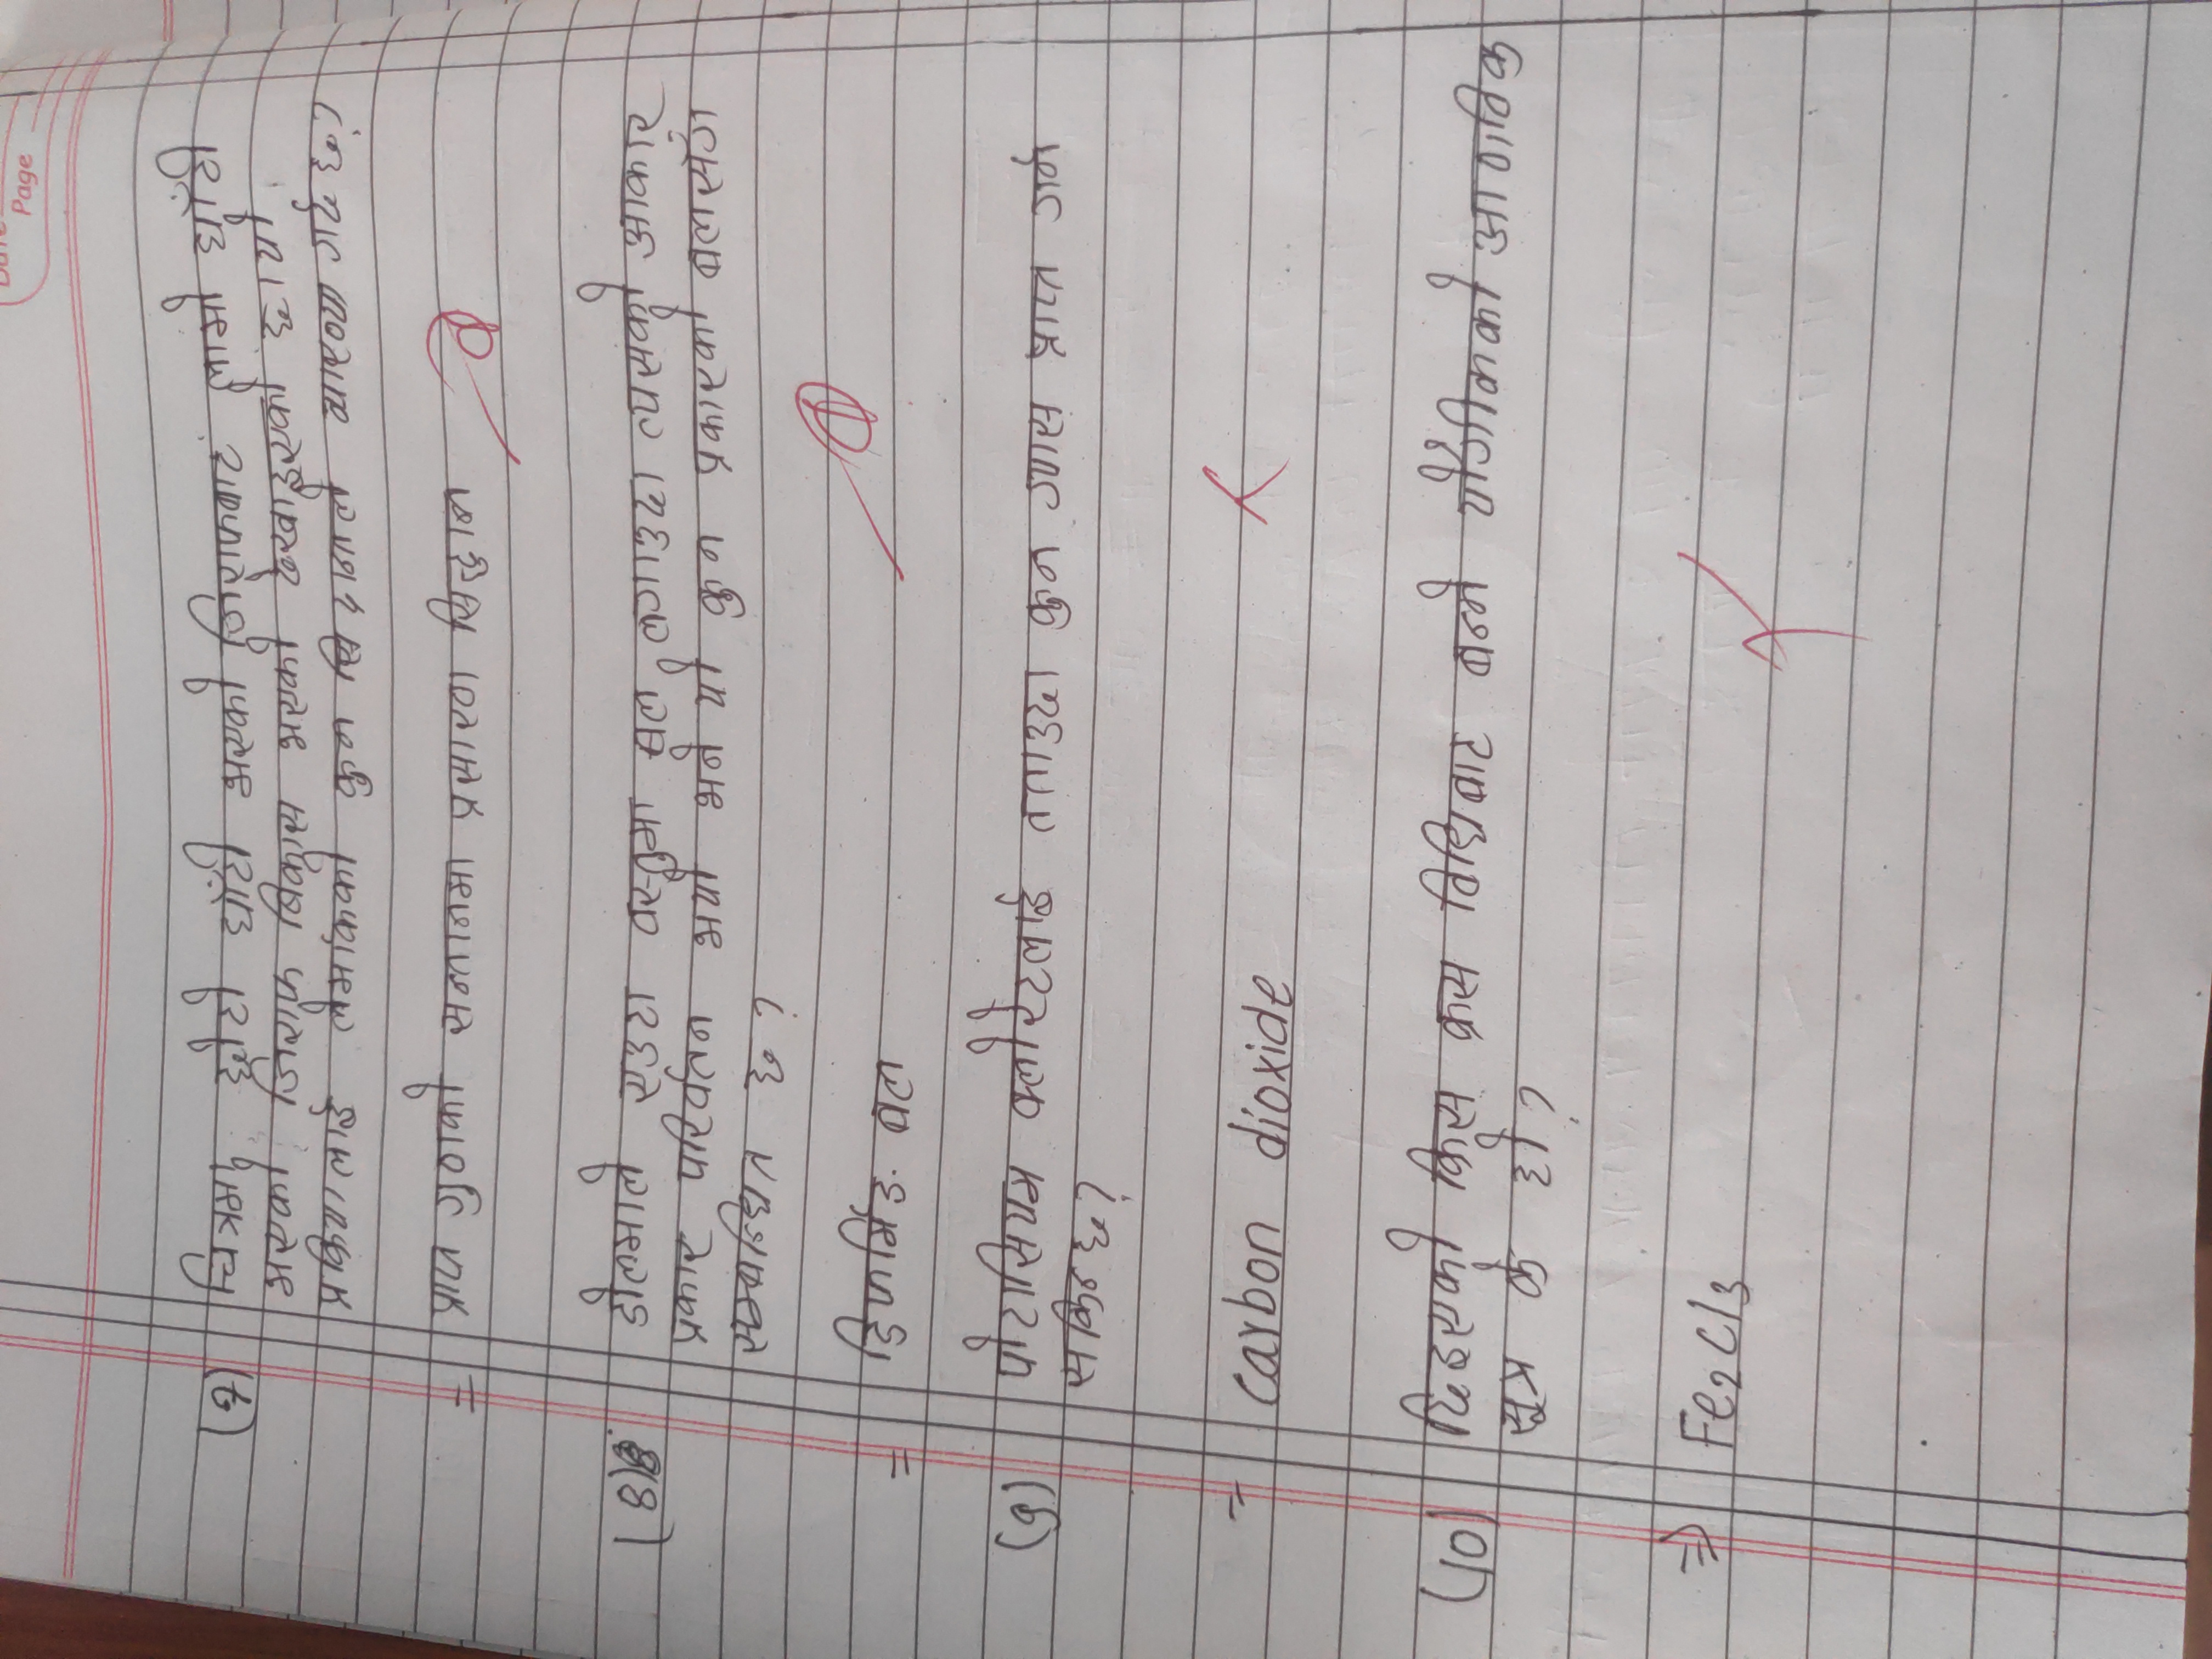 Date
Page
(7) चित्रमा छोटो घाँटी भएको जिराफबाट लामो घाँटी
भएको जिराफ बिकास भएको देखाइएको छ। यो
प्रक्रियालाई लेमार्कको कुन सिदान्तले ब्याख्या गर्द छ?
= प्राप्त गुणको सन्तानमा प्रसारण सिद्धान्त
(8) डोल्माले एउटा वस्तुमा बल लगाउदा त्यसको आकार
प्रकार परिर्वतन भयो भने यो कुन प्रकारको बलसँग
सम्बन्धित छ?
= डिफर्मिङ बल
(9) पोटासियम क्लोरेटलाई तताउदा कुन ग्यास प्राप्त गर्न
सकिन्छ?
= carbon dioxide
(10) दिइएको क्रिस क्रस विधिबाट बन्ने यौगीकको आणविक
सूत्र के हो?
⇒ Fe₂Cl₃